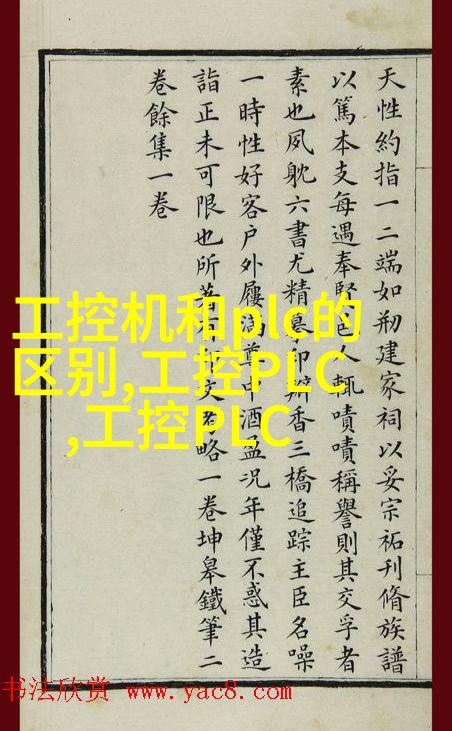 天性約指一二端如剏建家祠以妥宗祏刊脩族譜
以篤本支每遇奉賢邑人輒嘖嘖稱譽則其交孚者
素也夙躭六書尤精摹印瓣香三橋追踪主臣名噪
一時性好客户外屨満尊中酒盈況年僅不惑其造
詣正未可限也所著有印文考略一卷坤皋鐵筆二
卷餘集一卷
工控机和plc的
区别,工控PLC
,工控PLC
书法欣赏 www.yac8.com